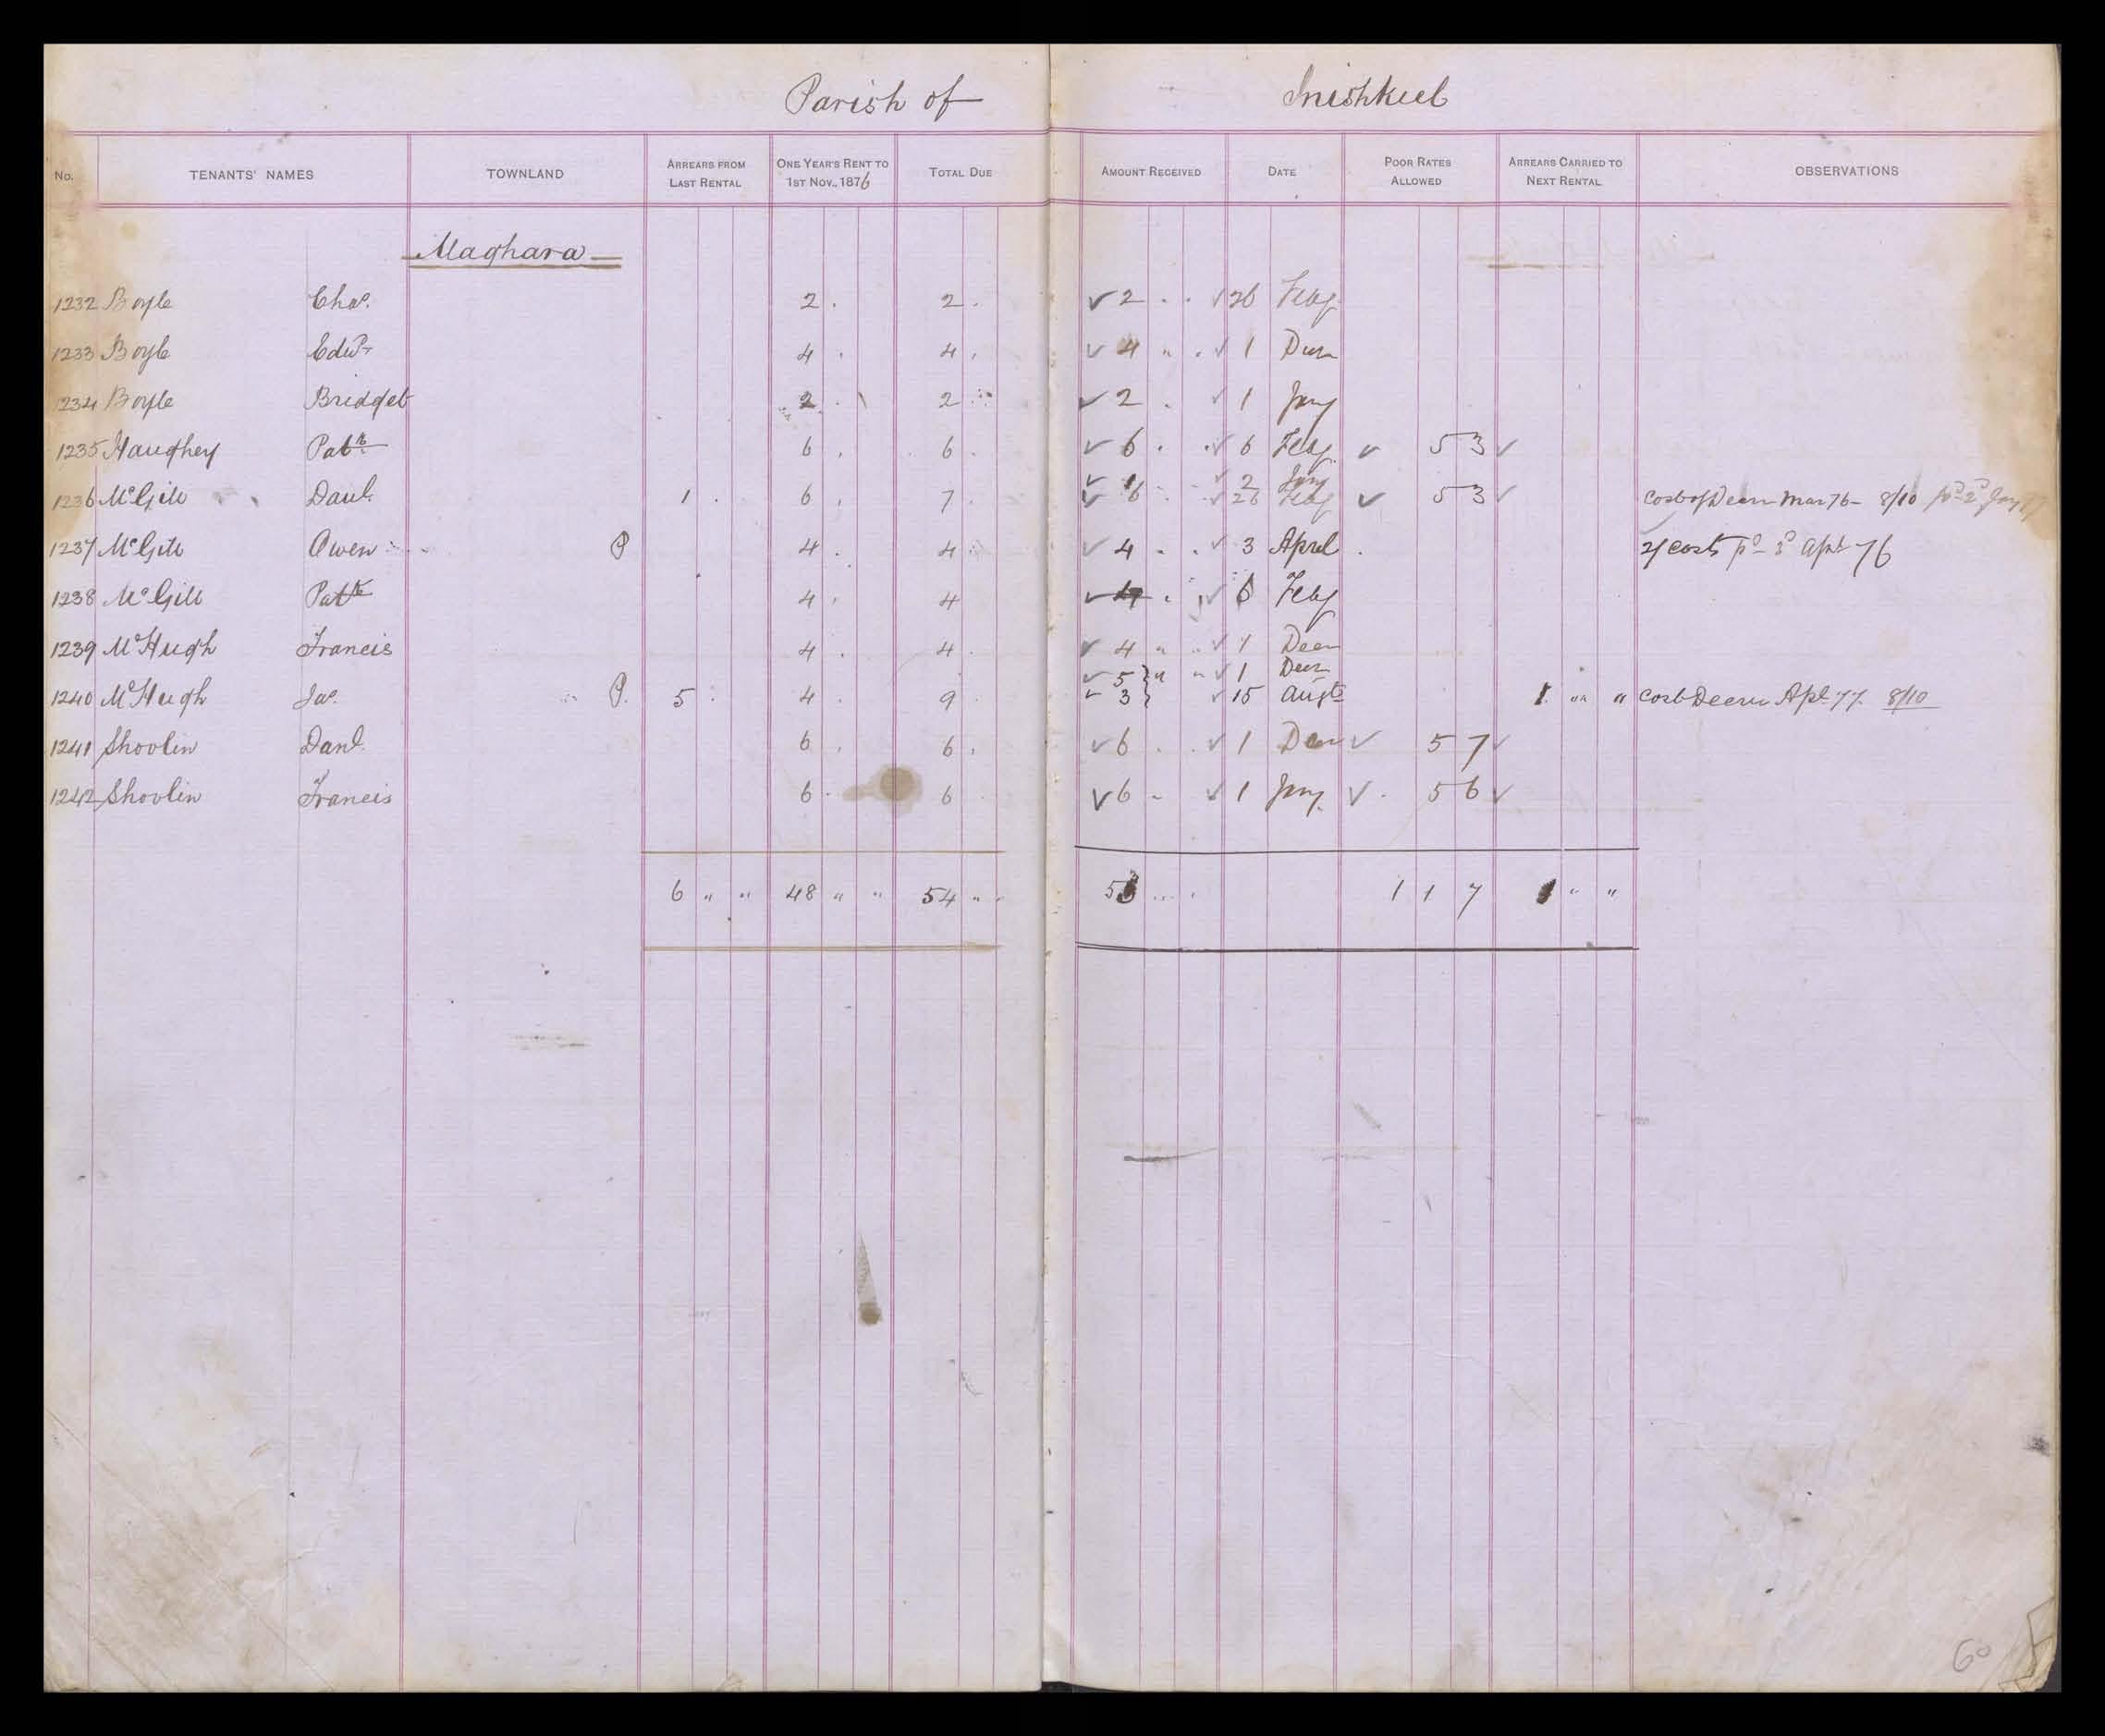 Parish of Inishkeel
No. TENANTS' NAMES TOWNLAND ARREARS FROM LAST RENTAL ONE YEAR'S RENT TO 1ST NOV., 1876 TOTAL DUE AMOUNT RECEIVED DATE POOR RATES ALLOWED ARREARS CARRIED TO NEXT RENTAL OBSERVATIONS
Maghara
1232 Boyle Chas. 2 . 2 . ✓ 2 . . ✓ 26 Feby
1233 Boyle Edwd 4 . 4 . ✓ 4 " . ✓ 1 Decr
1234 Boyle Bridget 2 . 2 . ✓ 2 . ✓ 1 Jany
1235 Haughey Patk 6 . 6 . ✓ 6 . . ✓ 6 Feby ✓ 5 3 ✓
✓ 1 ✓ 2 Jany
1236 McGill Danl. 1 . 6 . 7 . ✓ 6 . ✓ 26 Feby ✓ 5 3 ✓ Cost of Decree Mar 76 - 8/10 pd 2d Jany
1237 McGill Owen P 4 . 4 . ✓ 4 . . ✓ 3 April . 2/ Costs pd 3d Apl 76
1238 McGill Patk 4 . 4 ✓ 4 . ✓ 6 Feby
1239 McHugh Francis 4 . 4 . ✓ 4 " ✓ 1 Decr
✓ 5 } " " ✓ 1 Decr
1240 McHugh Jas. P. 5 . 4 . 9 . ✓ 3 } ✓ 15 Augt 1 " " Cost Decree Apl 77. 8/10
1241 Shovlin Danl. 6 . 6 . ✓ 6 . . ✓ 1 Decr ✓ 5 7 ✓
1242 Shovlin Francis 6 . 6 . ✓ 6 - ✓ 1 Jany. ✓ . 5 6 ✓
6 " " 48 " " 54 " " 53 . . . 1 1 7 1 " "
60